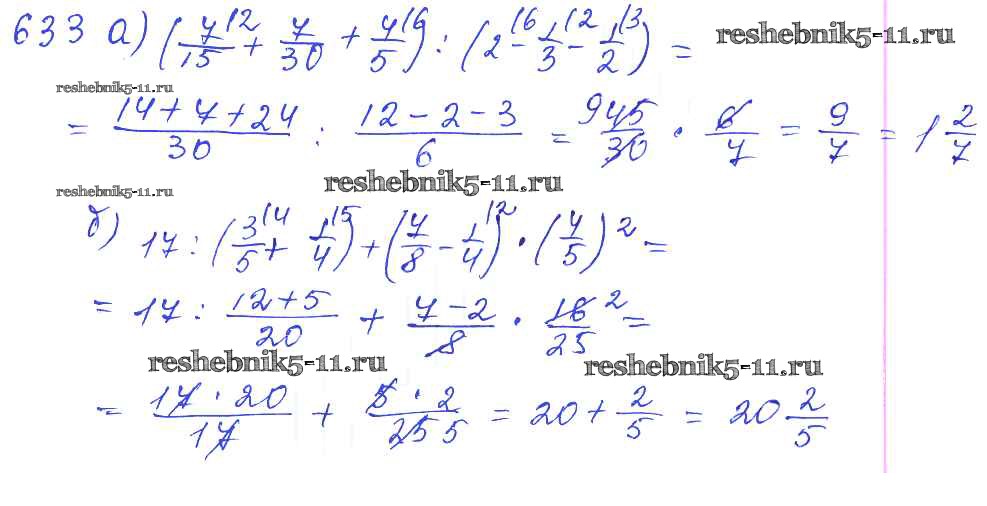 633 а) (7/15 + 7/30 + 4/5) : (2 - 1/3 - 1/2) =
(2 (6 (6 (2 (3
reshebnik5-11.ru
reshebnik5-11.ru
= (14 + 7 + 24)/30 : (12 - 2 - 3)/6 = 9 45/30 · 6/7 = 9/7 = 1 2/7
reshebnik5-11.ru
reshebnik5-11.ru
б) 17 : (3/5 + 1/4) + (7/8 - 1/4) · (4/5)² =
(4 (5 (2
= 17 : (12 + 5)/20 + (7 - 2)/8 · 16 2/25 =
reshebnik5-11.ru
reshebnik5-11.ru
= (17 · 20)/17 + (5 · 2)/25 5 = 20 + 2/5 = 20 2/5